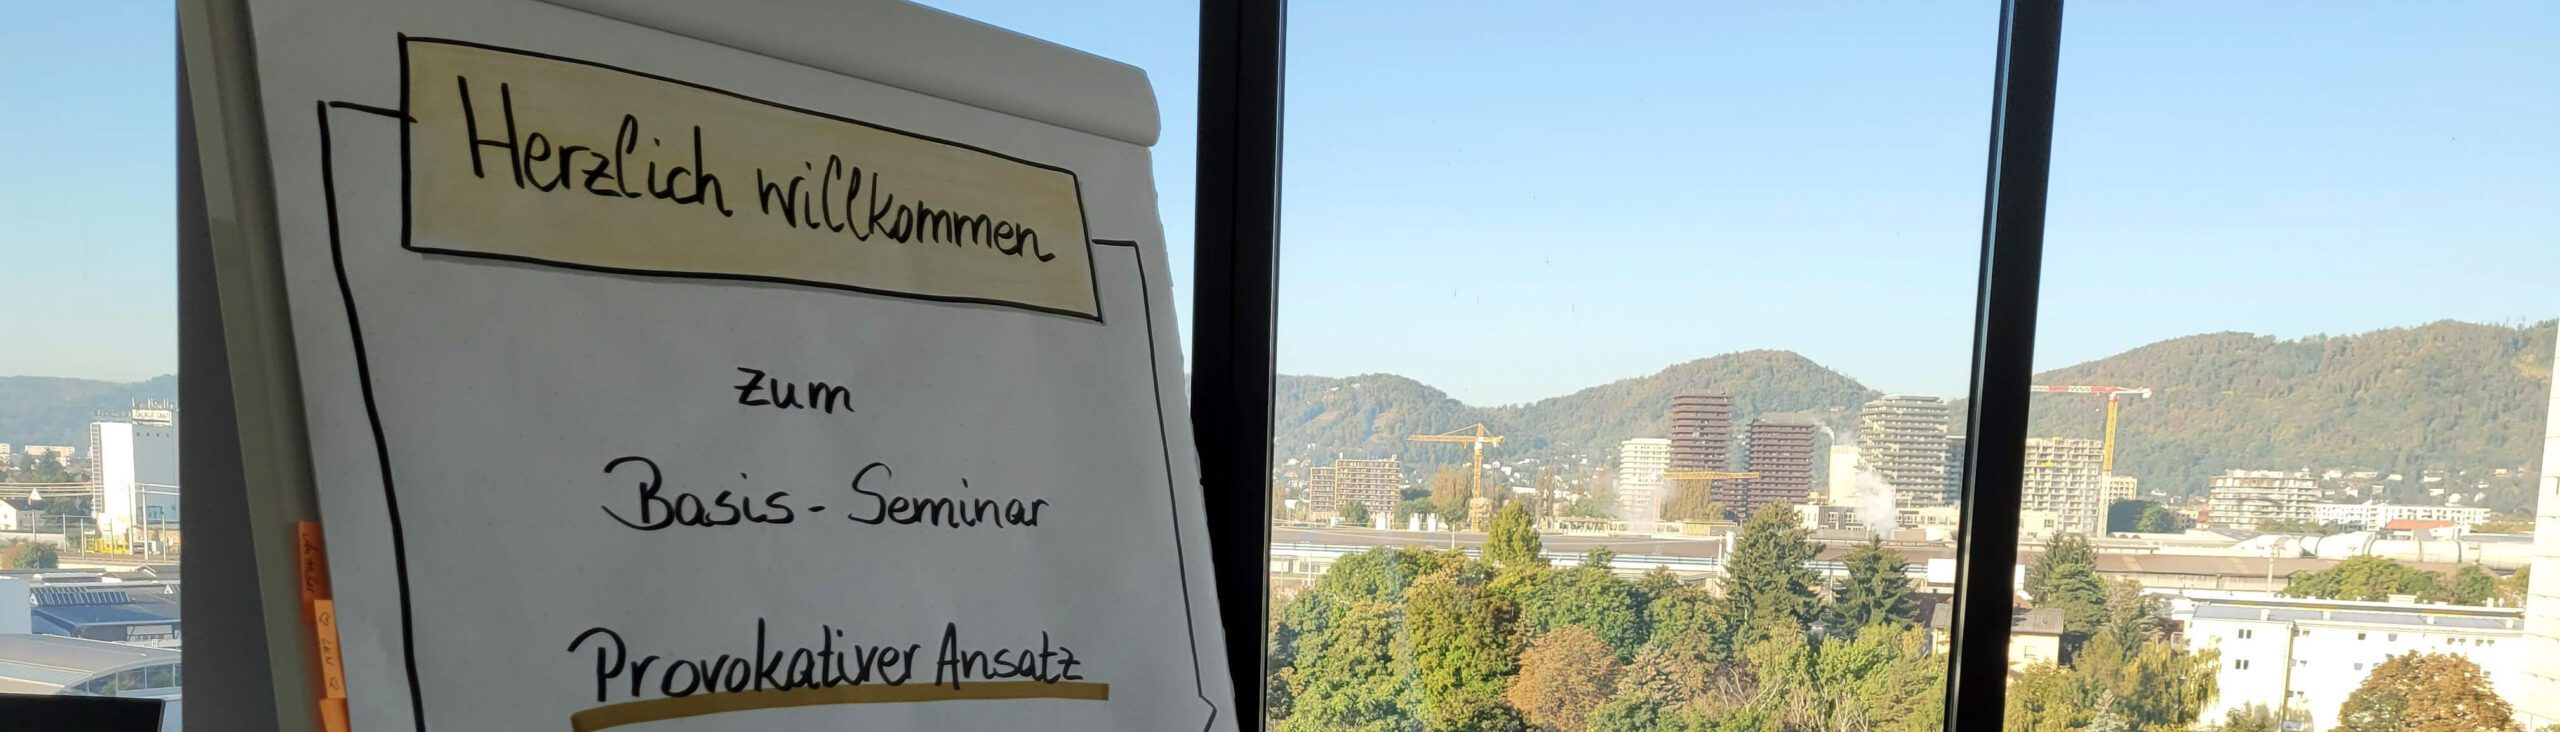 Herzlich willkommen
zum
Basis-Seminar
Provokativer Ansatz